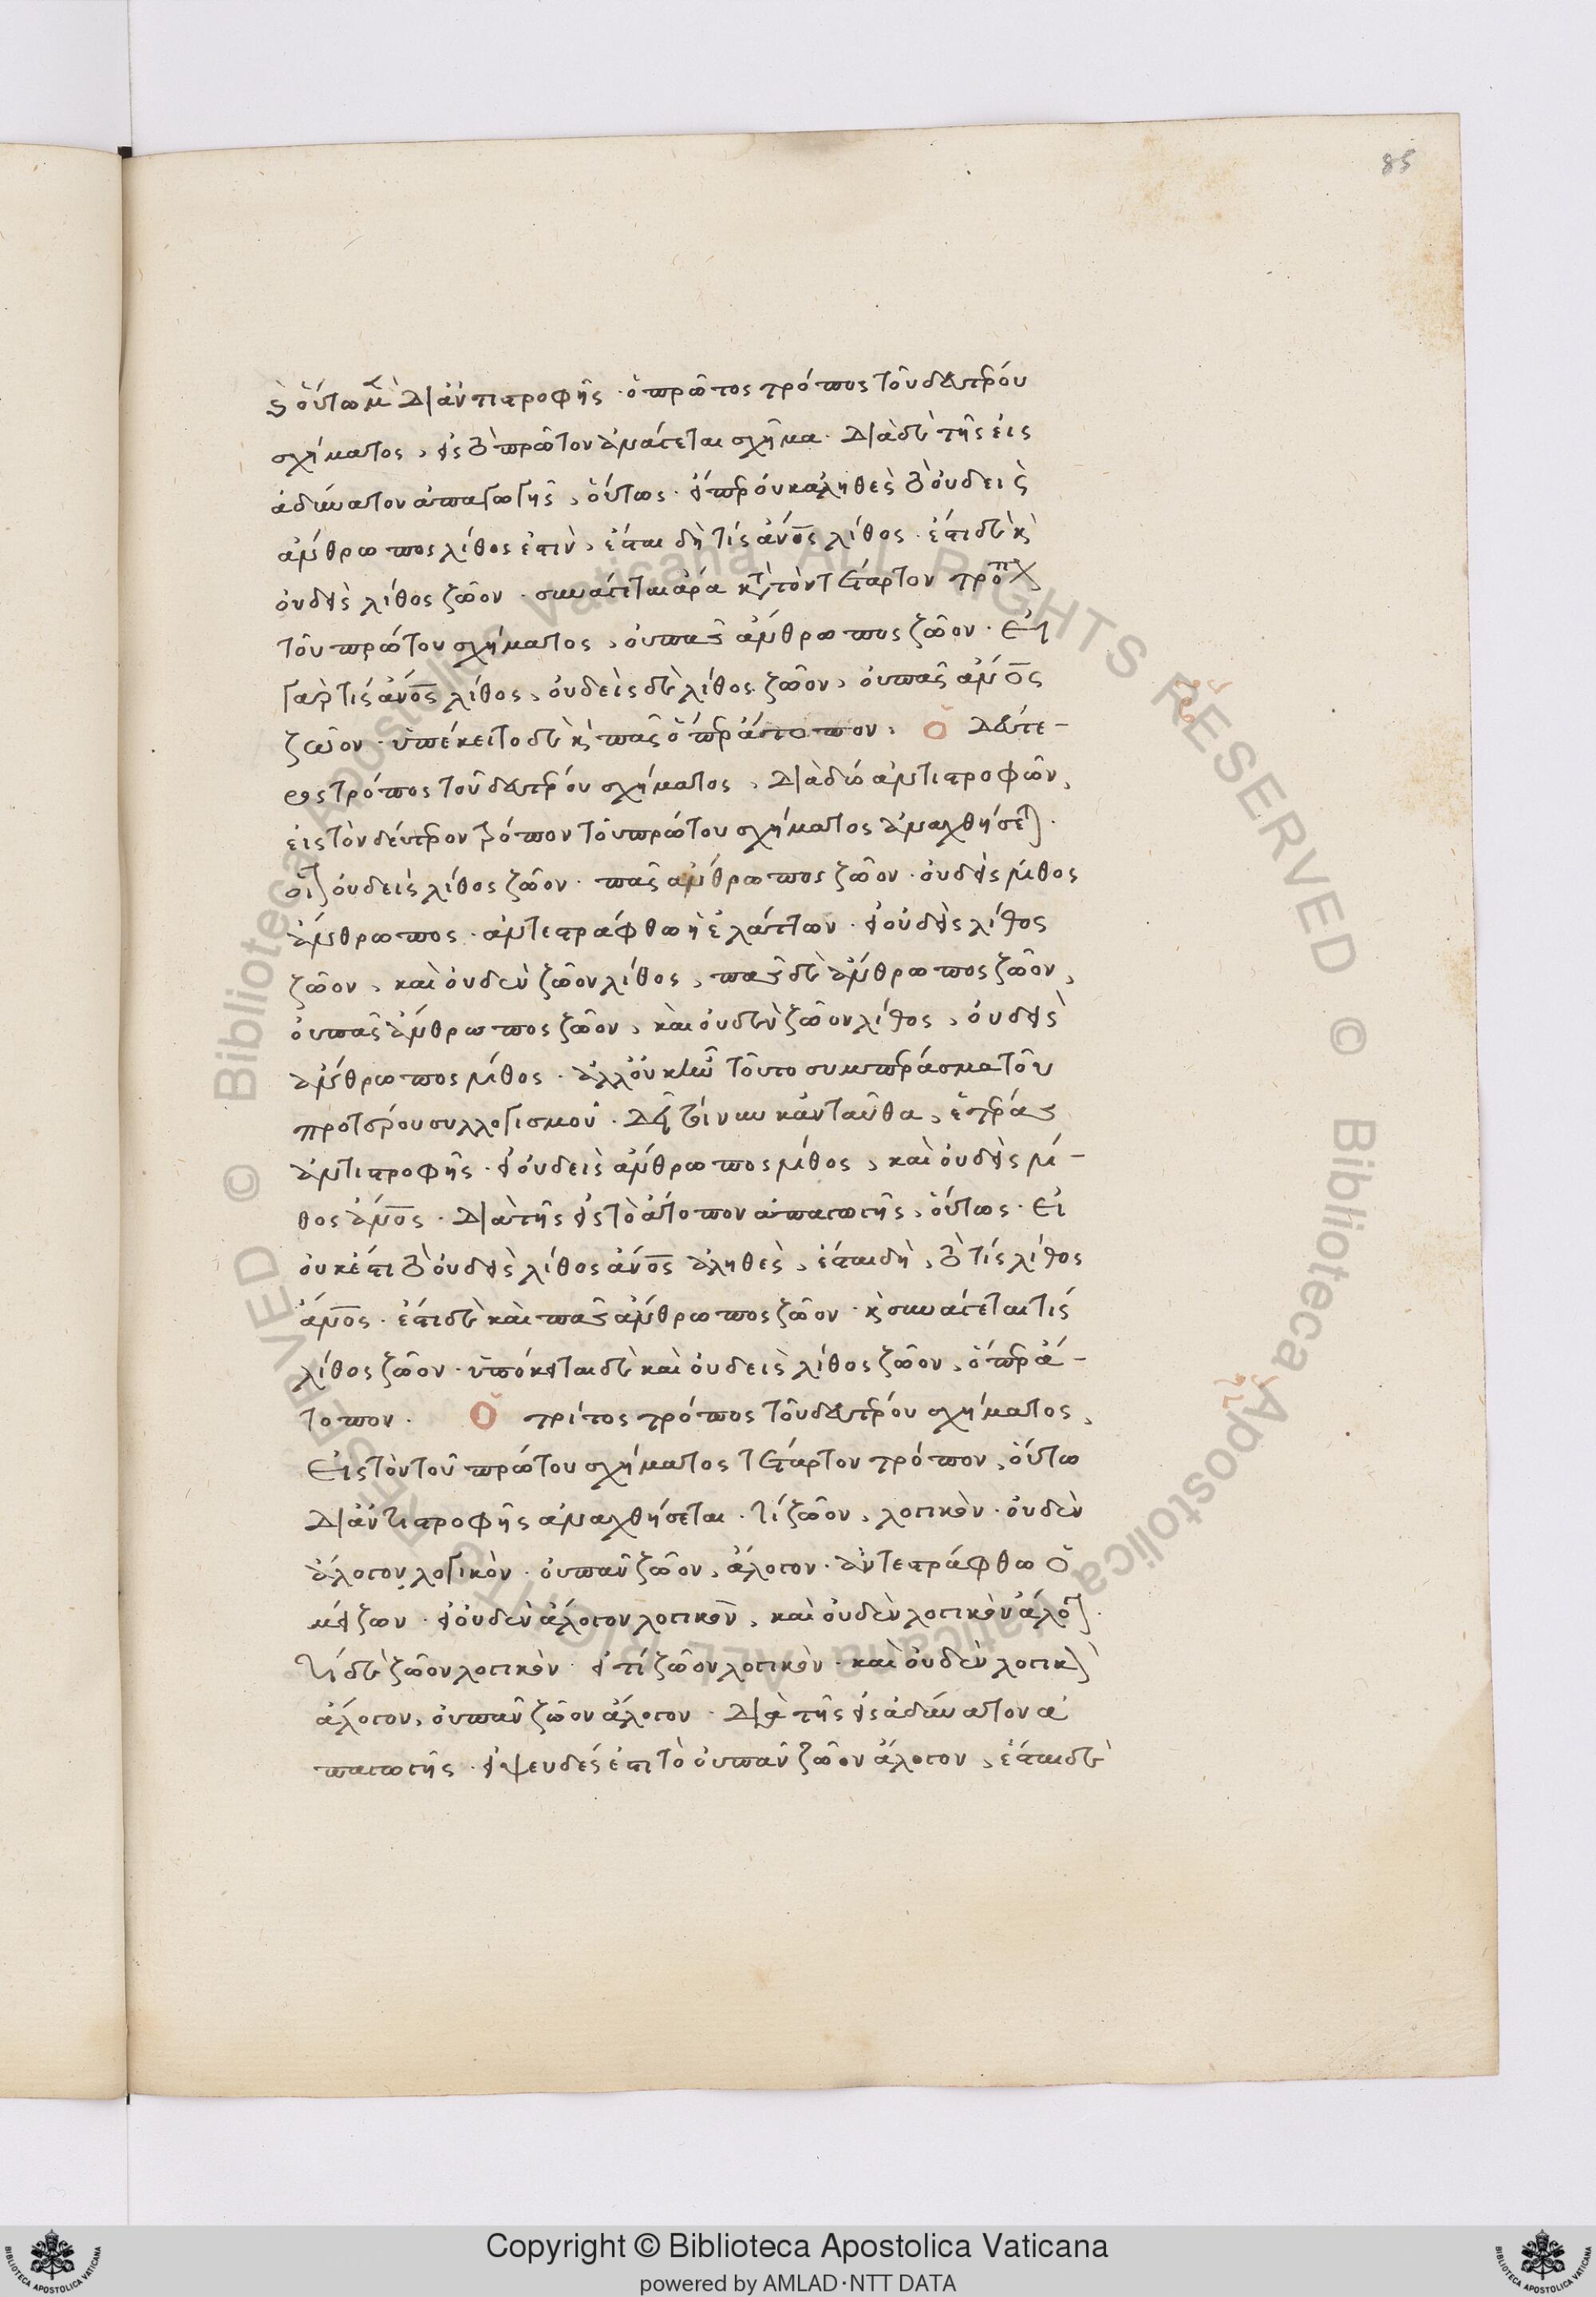 85
καὶ οὕτω μὲν δι' ἀντιστροφῆς ὁ πρῶτος τρόπος τοῦ δευτέρου
σχήματος, εἰς τὸ πρῶτον ἀνάγεται σχῆμα. διὰ δὲ τῆς εἰς
ἀδύνατον ἀπαγωγῆς, οὕτως. εἴπερ οὐκ ἀληθὲς τὸ οὐδεὶς
ἄνθρωπος λίθος ἐστὶν, ἔσται δὴ τίς ἄνος λίθος. ἔστι δὲ καὶ
οὐδεὶς λίθος ζῶον. συνάγεται ἄρα κατὰ τὸν τέταρτον τρόπον
τοῦ πρώτου σχήματος, οὐ πᾶς ἄνθρωπος ζῶον. Εἰ
γὰρ τίς ἄνος λίθος, οὐδεὶς δὲ λίθος ζῶον, οὐ πᾶς ἄνος
ζῶον. ὑπέκειτο δὲ καὶ πᾶς ὅπερ ἄτοπον. Ὁ δεύτε-
ρος τρόπος τοῦ δευτέρου σχήματος, διὰ δύο ἀντιστροφῶν,
εἰς τὸν δεύτερον τρόπον τοῦ πρώτου σχήματος ἀναχθήσεται.
οἷον οὐδεὶς λίθος ζῶον. πᾶς ἄνθρωπος ζῶον. οὐδεὶς λίθος
ἄνθρωπος. ἀντεστράφθω ἡ ἐλάττων. εἰ οὐδεὶς λίθος
ζῶον, καὶ οὐδὲν ζῶον λίθος, πᾶς δὲ ἄνθρωπος ζῶον,
οὐ πᾶς ἄνθρωπος ζῶον, καὶ οὐδὲν ζῶον λίθος, οὐδεὶς
ἄνθρωπος λίθος. ἀλλ' οὐκ ἦν τοῦτο συμπέρασμα τοῦ
προτέρου συλλογισμοῦ. δεῖ τοίνυν κἀνταῦθα, ἑτέρας
ἀντιστροφῆς. εἰ οὐδεὶς ἄνθρωπος λίθος, καὶ οὐδεὶς λί-
θος ἄνος. διὰ τῆς εἰς τὸ ἄτοπον ἀπαγωγῆς, οὕτως. Εἰ
οὐκ ἔστι τὸ οὐδεὶς λίθος ἄνος ἀληθὲς, ἔσται δὴ, τὸ τίς λίθος
ἄνος. ἔστι δὲ καὶ πᾶς ἄνθρωπος ζῶον. καὶ συνάγεται τίς
λίθος ζῶον. ὑπόκειται δὲ καὶ οὐδεὶς λίθος ζῶον, ὅπερ ἄ-
τοπον. Ὁ τρίτος τρόπος τοῦ δευτέρου σχήματος,
Εἰς τὸν τοῦ πρώτου σχήματος τέταρτον τρόπον, οὕτω
δι' ἀντιστροφῆς ἀναχθήσεται. τὶ ζῶον, λογικόν. οὐδὲν
ἄλογον λογικόν. οὐ πᾶν ζῶον, ἄλογον. ἀντεστράφθω ὁ
μείζων. εἰ οὐδὲν ἄλογον λογικὸν, καὶ οὐδὲν λογικὸν ἄλογον.
τὶ δὲ ζῶον λογικόν. εἰ τί ζῶον λογικόν. καὶ οὐδὲν λογικὸν
ἄλογον, οὐ πᾶν ζῶον ἄλογον. διὰ τῆς εἰς ἀδύνατον ἀ
παγωγῆς. εἰ ψευδές ἐστι τὸ οὐ πᾶν ζῶον ἄλογον, ἔσται δὲ
Copyright © Biblioteca Apostolica Vaticana
powered by AMLAD·NTT DATA